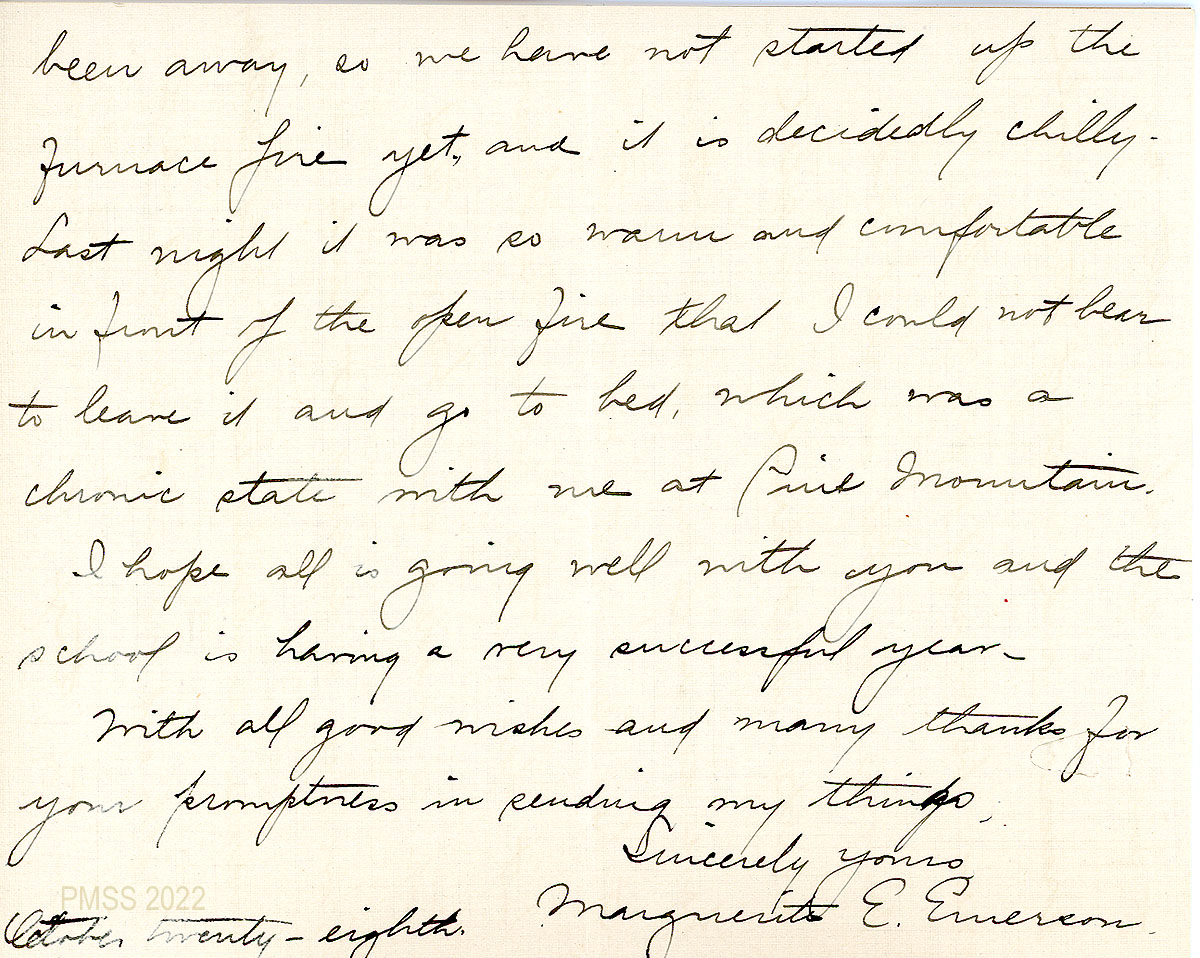 been away, so we have not started up the
furnace fire yet, and it is decidedly chilly-
Last night it was so warm and comfortable
in front of the open fire that I could not bear
to leave it and go to bed, which was a
chronic state with me at Pine Mountain.
I hope all is going well with you and the
school is having a very successful year-
With all good wishes and many thanks for
your promptness in sending my things,
Sincerely yours,
PMSS 2022
Marguerite E. Emerson.
October twenty-eighth.